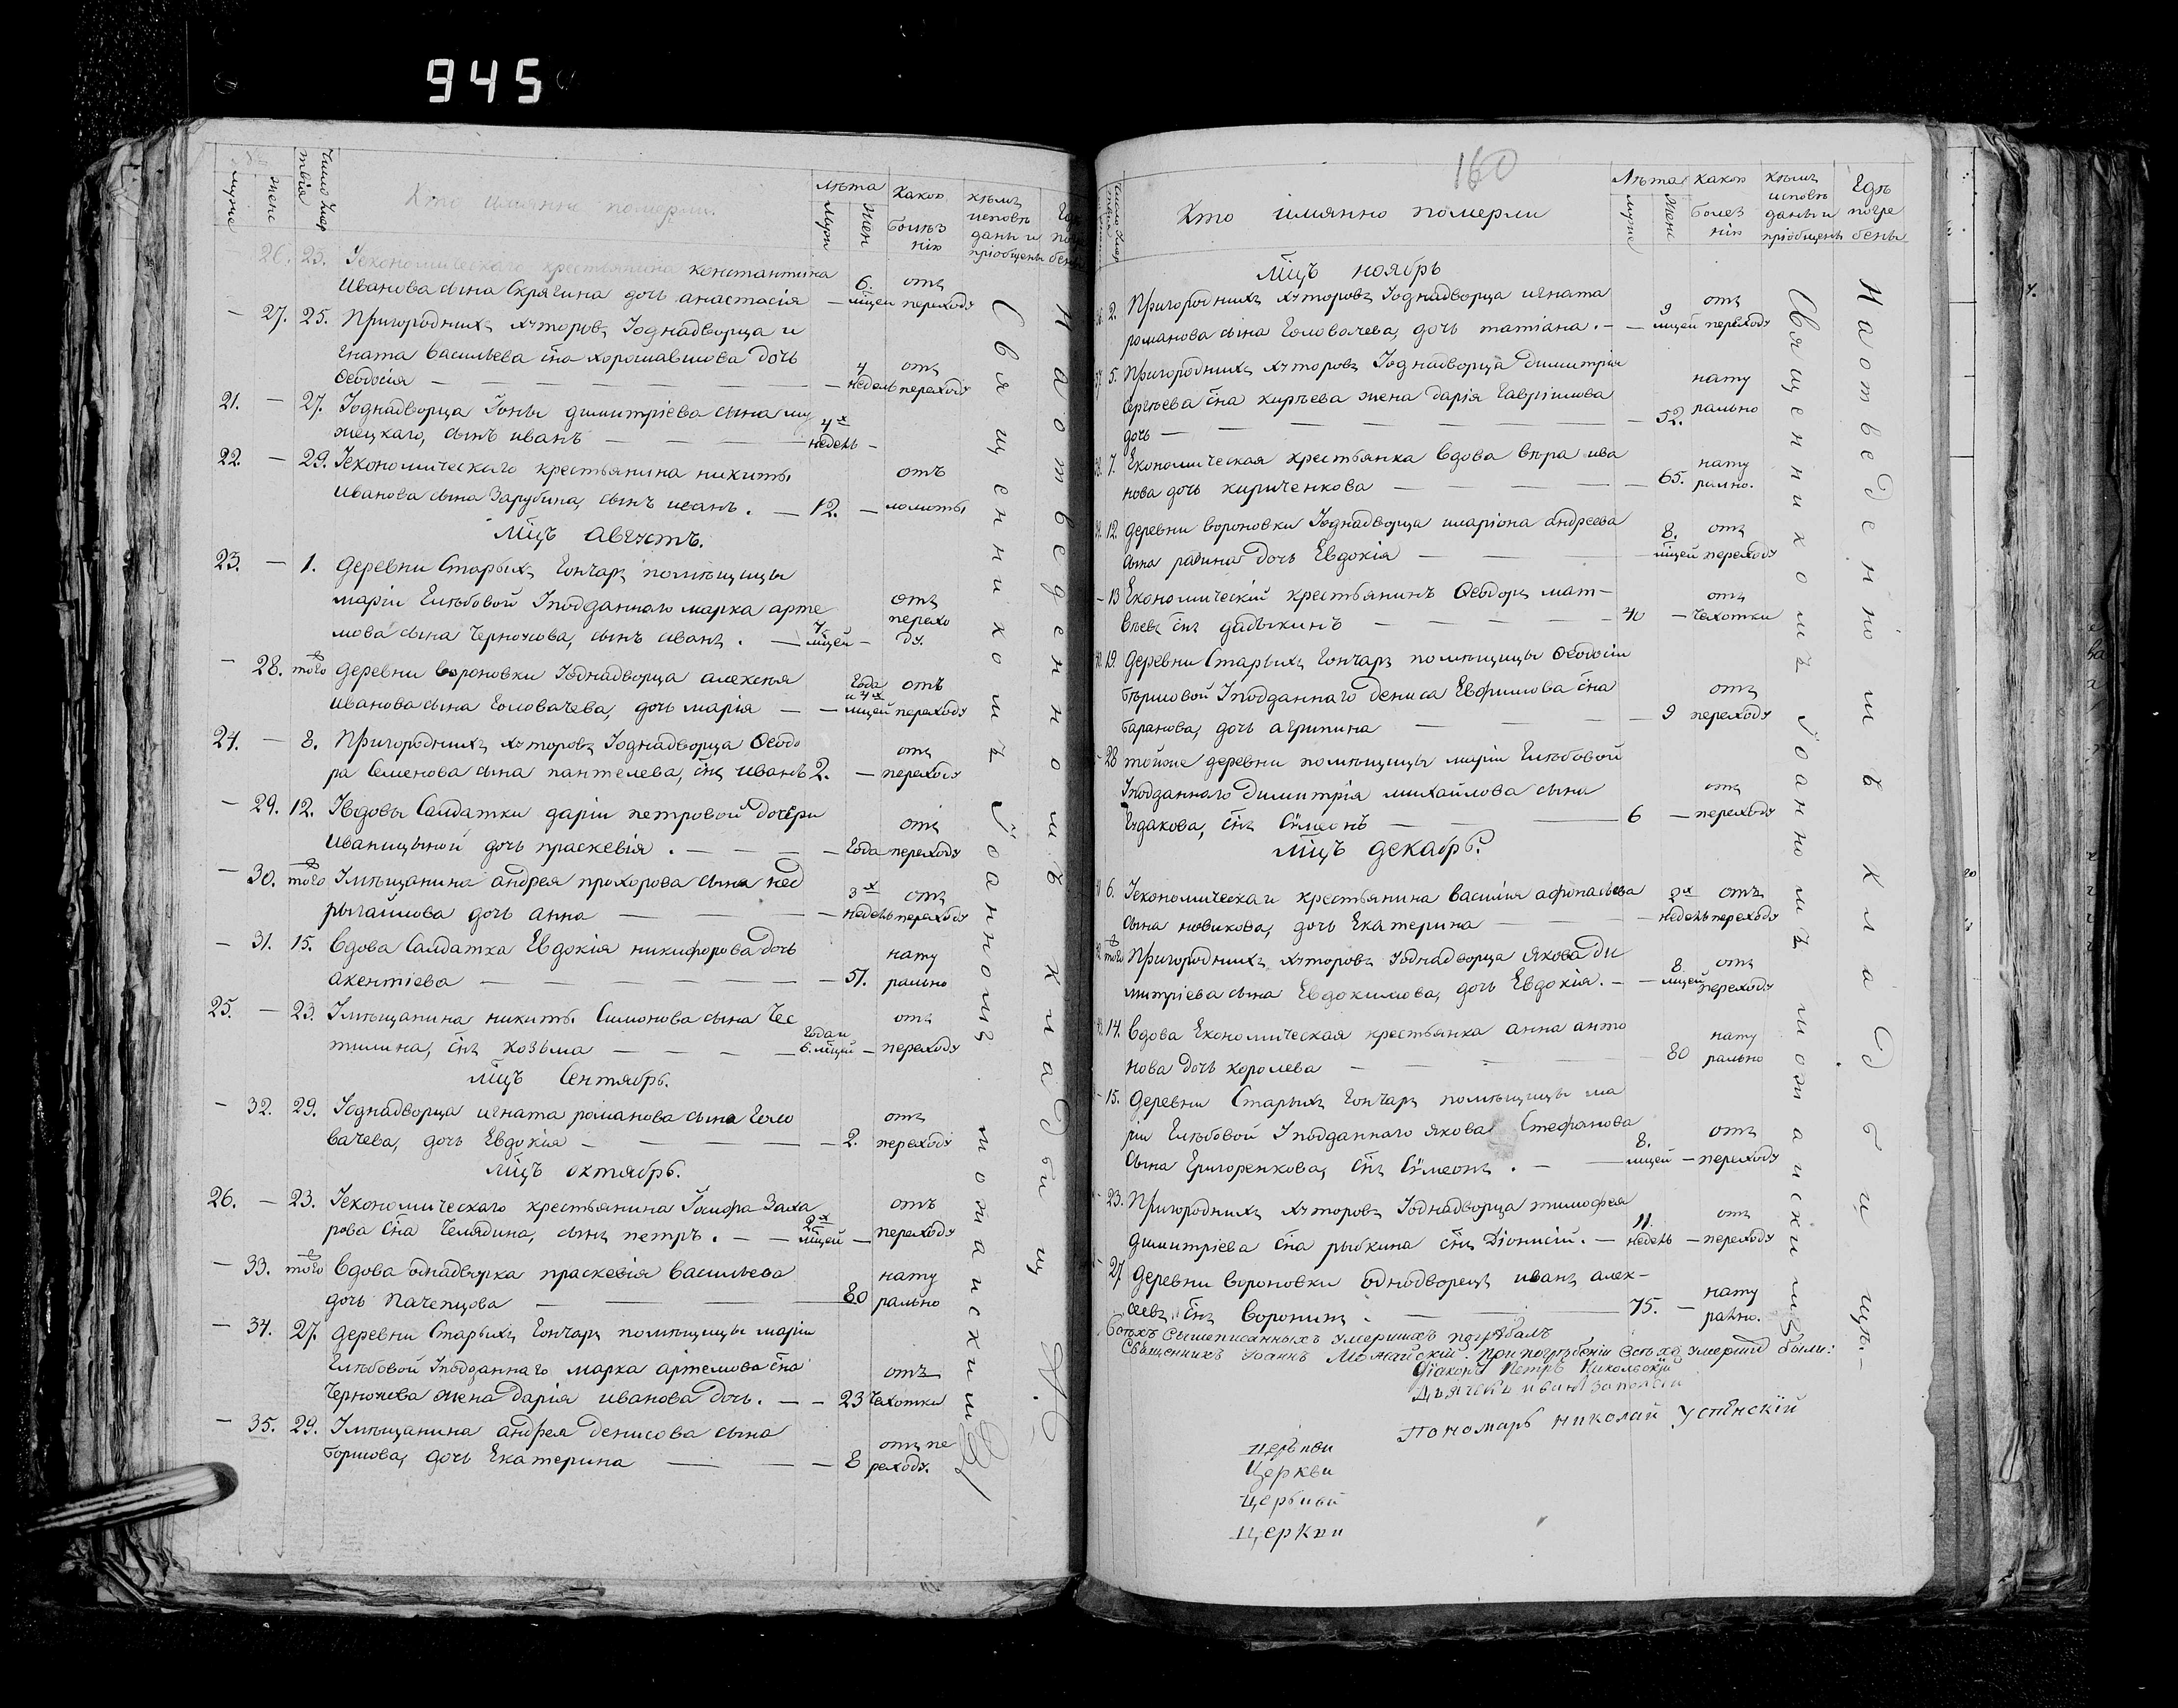 945
муже
жене
число Умер
твія
Кто имянно померли.
Лѣта
Муж
Жен
Какою
болѣз
нію
кѣмъ
исповѣ
даны и
пріобщены
26. 23. Уекономическаго крестьянина константина
Иванова сына Скрягина дочь анастасія — 6. мцей отъ переходу
— 27. 25. Пригородныхъ хуторовъ Уоднадворца и
гната васильева сна хорошавилова дочь
Ѳеодосія — 4 недель отъ переходу
21. — 27. Уоднадворца Іоны димитріева сына му
жецкаго, сынъ иванъ — 4х недель —
22. — 29. Уекономическаго крестьянина никиты
Иванова сына Зарубина, сынъ исаиъ. — 12. — отъ ломоты
Мцъ Августъ.
23. — 1. деревни Старыхъ Гончаръ помѣщицы
маріи Глѣбовой Уподданнаго марка арте
мова сына Черночова, сынъ иванъ. — 7. мцей — отъ перехо
ду.
— 28. того деревни вороновки Уоднадворца алексѣя
Иванова сына Головачева, дочь марія — Года и 4х мцей отъ переходу
24. — 8. Пригородныхъ хуторовъ Уоднадворца Ѳеодо
ра Семенова сына пантелева, снъ иванъ 2. — отъ переходу
— 29. 12. Увдовы Салдатки даріи петровой дочери
Иванищиной дочь праскевія. — Года отъ переходу
— 30. того Умѣщанина андрея прохорова сына нед
рыгайлова дочь анна — 3х недель отъ переходу
— 31. 15. Вдова Салдатка Евдокія никифорова дочь
акентіева — 57. нату
рально
25. — 23. Умѣщанина никиты Симонова сына Чес
тилина, снъ козьма — Года и 6. мцей — отъ переходу
Мцъ Сентябрь.
— 32. 29. Уоднадворца игната романова сына Голо
вачева, дочь Евдокія — 2. отъ переходу
Мцъ октябрь.
26. — 23. Уекономическаго крестьянина Іосифа Заха
рова сна Челядина, сынъ петръ. — 2х мцей — отъ переходу
— 33. того Вдова однадворка праскевія васильева
дочь Пачепцова — 80 нату
рально
— 34. 27. деревни Старыхъ Гончаръ помѣщицы маріи
Глѣбовой Уподданнаго марка артемова сна
Черночева жена дарія иванова дочь. — 23 отъ Чахотки
— 35. 29. Умѣщанина андрея денисова сына
Борисова, дочь Екатерина — 8 отъ пе
реходу.
Священникомъ Іоанномъ можаискимъ
На отведенномъ кладбищѣ
160
Кто имянно померли
Лѣта
муже
Жене
Какою
Болез
нію
кѣмъ
исповѣ
даны и
пріобщены
Гдѣ
погре
бены
Мцъ ноябрь
2. Пригородныхъ хуторовъ Уоднадворца игната
романова сына Головачева, дочь татіана. — 9 мцей отъ переходу
5. Пригородныхъ хуторовъ Уоднадворца димитрія
Сергѣева сна кирѣева жена дарія Гавріилова
дочь — 52. нату
рально
7. Економическая крестьянка вдова вѣра ива
нова дочь кириченкова — 65. нату
рално.
12. деревни вороновки Уоднадворца иларіона андреева
сына равина дочь Евдокія — 8. мцей отъ переходу
— 13 Економическій крестьянинъ Ѳеодоръ мат—
вѣевъ снъ дадыкинъ — 40 — отъ Чахотки
19. деревни Старыхъ Гончаръ помѣщицы Ѳеодосіи
Уподданнаго дениса Евфимова сна
Баранова, дочь агрипина — 9 отъ переходу
— 28 тойже деревни помѣщицы маріи Глѣбовой
Уподданнаго димитрія михайлова сына
Гудакова, снъ Сѵмеонъ — 6 — отъ переходу
Мцъ декабрь.
6. Уекономическаго крестьянина василія афонасьева
сына новикова, дочь Екатерина — 2х недель отъ переходу
того Пригородныхъ хуторовъ Уоднадворца якова ди
митріева сына Евдокимова, дочь Евдокія. — 8. мцей отъ переходу
14. Вдова Економическая крестьянка анна анто
нова дочь королева — 80 нату
рально
— 15. деревни Старыхъ Гончаръ помѣщицы ма
ріи Глѣбовой Уподданнаго якова Стефанова
сына Григоренкова, снъ Сѵмеонъ. — 8. мцей — отъ переходу
— 23. Пригородныхъ хуторовъ Уоднадворца тимофея
димитріева сна рыбкина снъ Діонисій. — 11. недель — отъ переходу
— 27 деревни вороновки однодворецъ иванъ алек—
сеевъ снъ воронинъ. — 75. — нату
рално.
Священникомъ Іоанномъ можаискимъ
На отведенномъ кладбищѣ.
Всехъ вышеписанныхъ умершихъ погребалъ
Священникъ Іоаннъ Можайскій. При погребеніи всехъ умершихъ были:
Діаконъ Петръ Никольскій
Дьячекъ иванъ
Пономарь николай Успѣнскій
церькви
Церкви
церькви
церкви